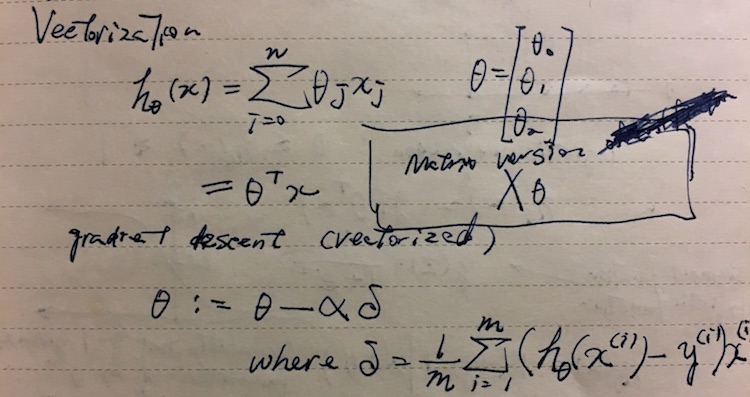 Vectorization
h_θ(x) = Σ_{j=0}^{n} θ_j x_j
θ = [θ_0 θ_1 θ_2]
= θ^T x
Matrix version
Xθ
gradient descent (vectorized)
θ := θ − αδ
where δ = 1/m Σ_{i=1}^{m} (h_θ(x^{(i)}) − y^{(i)}) x^{(i)}